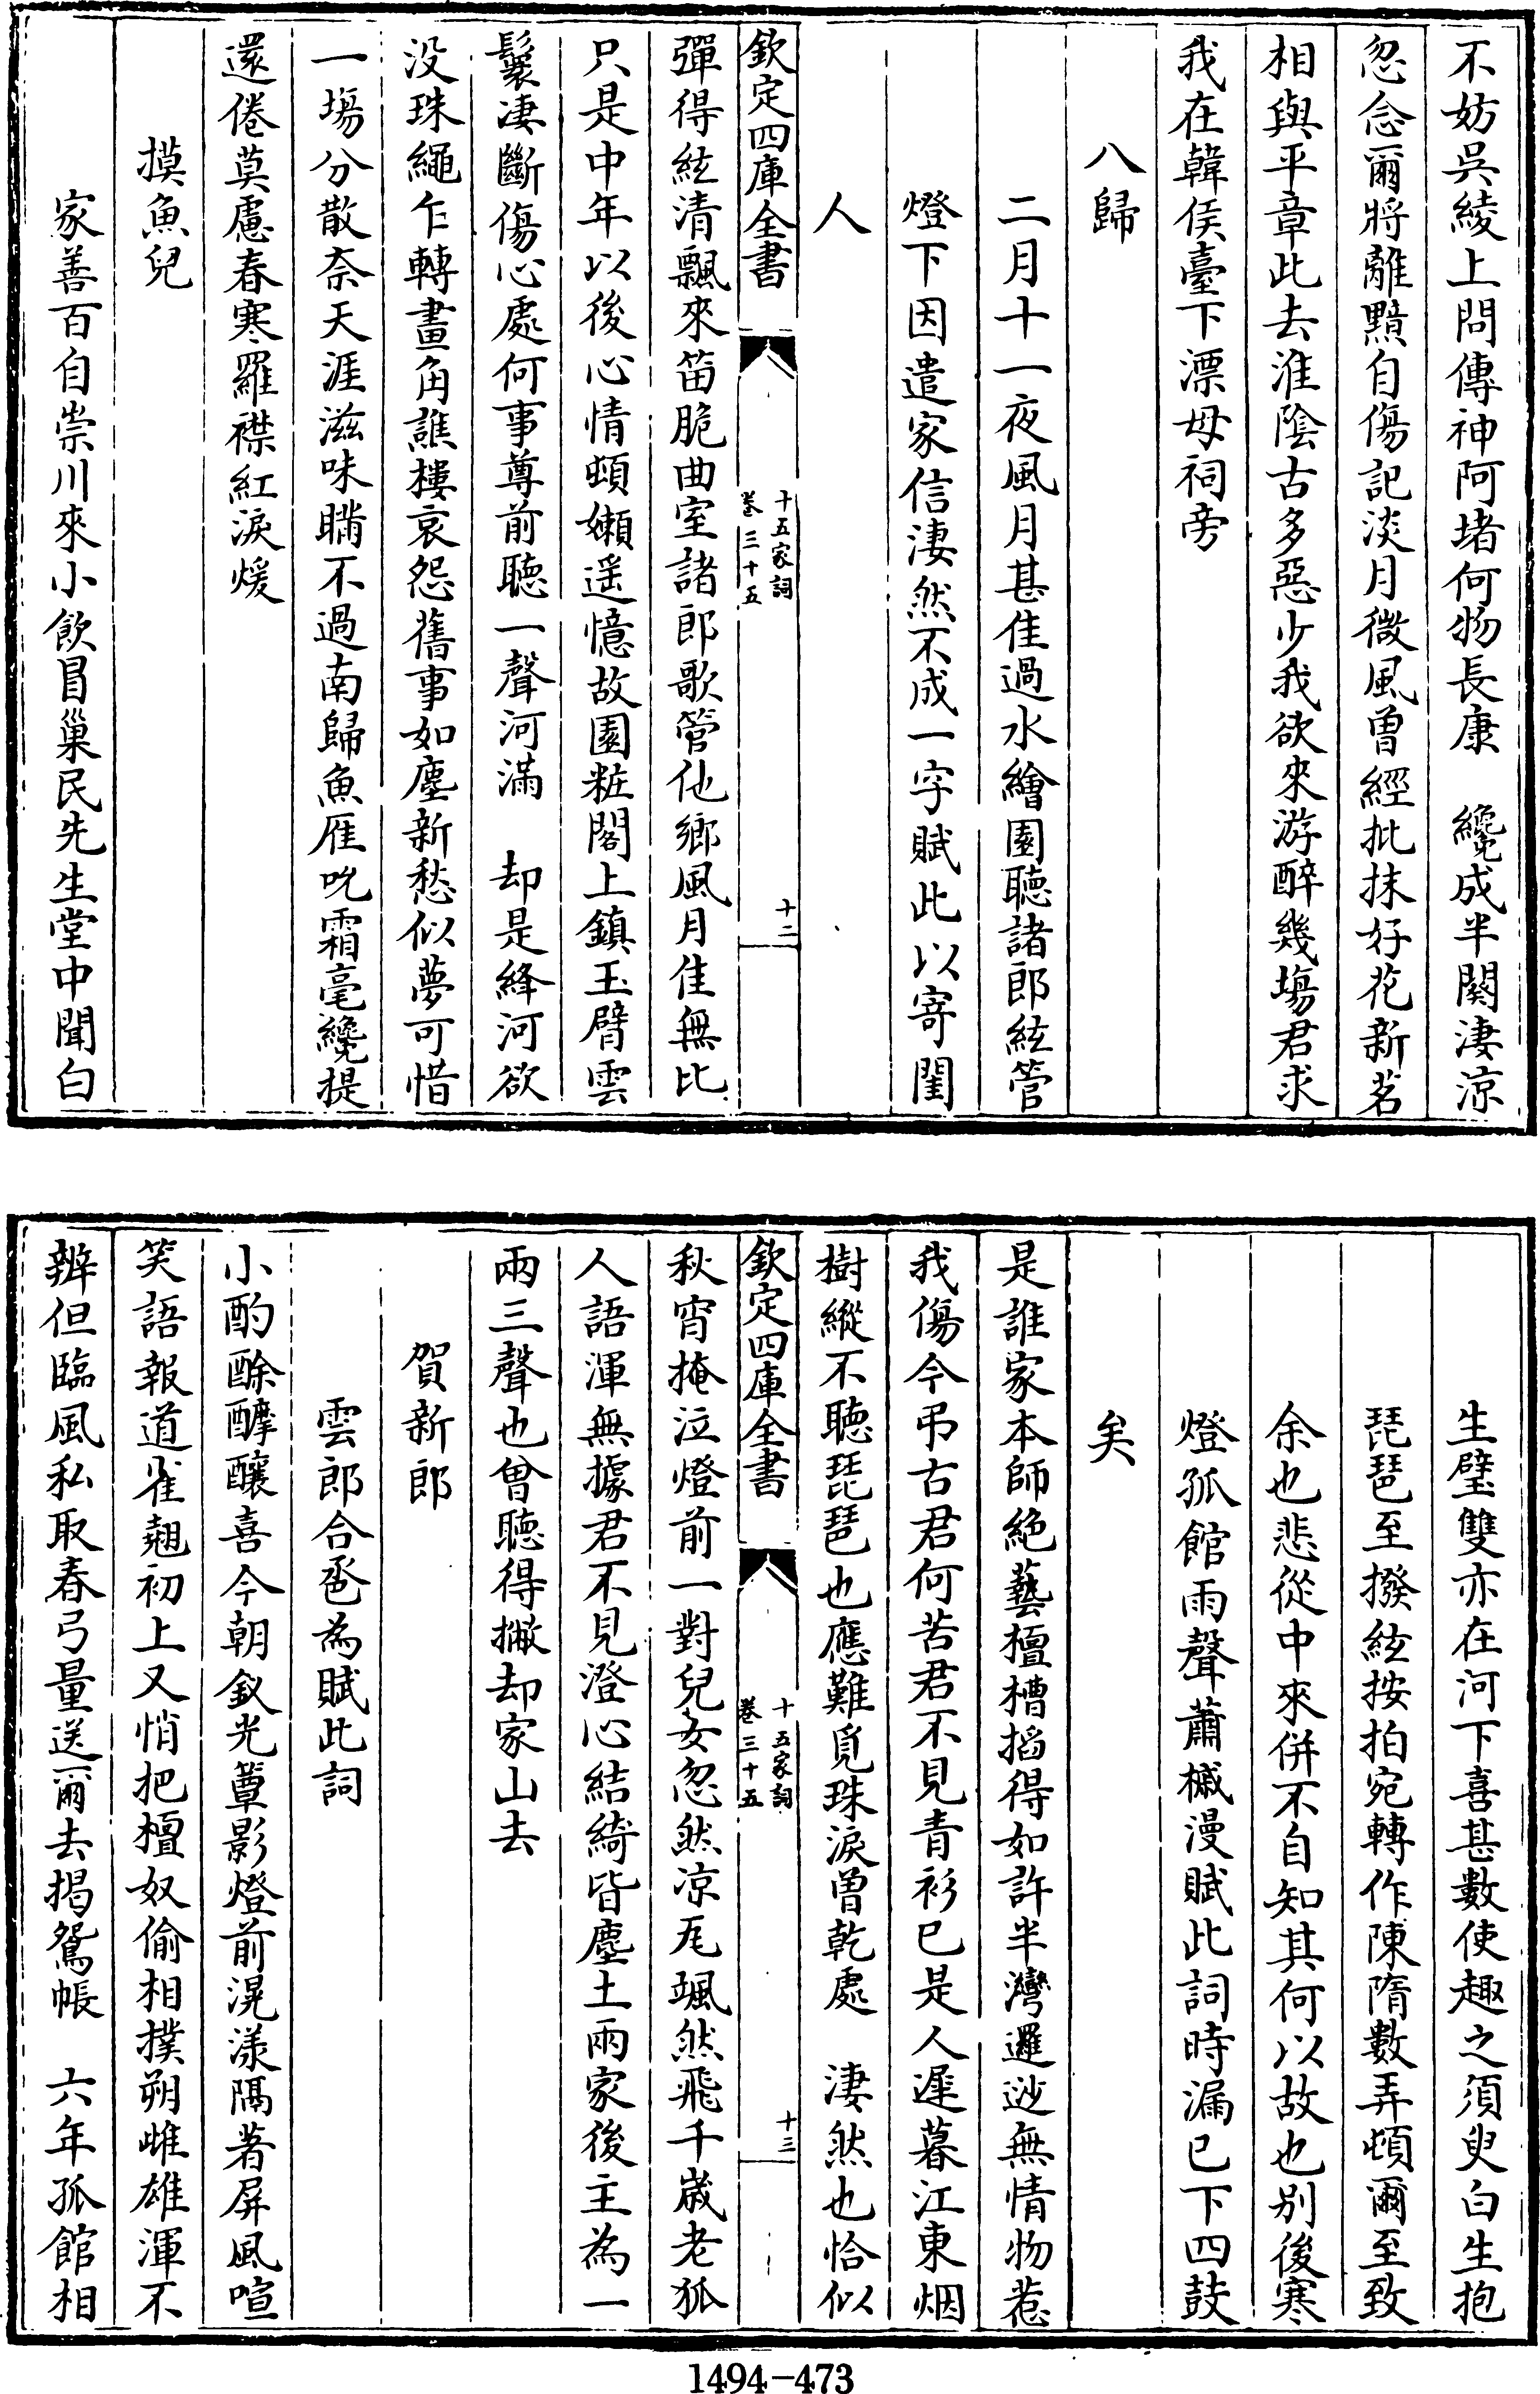 不妨吳綾上問傳神阿堵何物長康　纔成半闋淒涼
忽念爾將離黯自傷記淡月微風曾經批抹好花新茗
相與平章此去淮陰古多惡少我欲來游醉幾塲君求
我在韓侯臺下漂母祠旁
八歸
二月十一夜風月甚佳過水繪園聽諸郎絃管
燈下因遣家信淒然不成一字賦此以寄閨
人
欽定四庫全書
十五家詞
卷三十五
十二
彈得絃清飄來笛脆曲室諸郎歌管他鄉風月佳無比
只是中年以後心情頓嬾遥憶故園粧閣上鎮玉臂雲
鬟淒斷傷心處何事尊前聽一聲河滿　却是絳河欲
没珠繩乍轉畫角譙樓哀怨舊事如塵新愁似夢可惜
一塲分散奈天涯滋味瞞不過南歸魚雁吮霜毫纔提
還倦莫慮春寒羅襟紅淚煖
摸魚兒
家善百自崇川來小飲冒巢民先生堂中聞白
生璧雙亦在河下喜甚數使趣之須臾白生抱
琵琶至撥絃按拍宛轉作陳隋數弄頓爾至致
余也悲從中來併不自知其何以故也别後寒
燈孤館雨聲蕭槭漫賦此詞時漏已下四鼓
矣
是誰家本師絶藝檀槽搯得如許半灣邏逤無情物惹
我傷今弔古君何苦君不見青衫已是人遲暮江東烟
樹縱不聽琵琶也應難覓珠淚曾乾處　淒然也恰似
欽定四庫全書
十五家詞
卷三十五
十三
秋宵掩泣燈前一對兒女忽然涼瓦颯然飛千歲老狐
人語渾無據君不見澄心結綺皆塵土兩家後主為一
兩三聲也曾聽得撇却家山去
賀新郎
雲郎合巹為賦此詞
小酌酴醿釀喜今朝釵光簟影燈前滉漾隔著屏風喧
笑語報道雀翹初上又悄把檀奴偷相撲朔雌雄渾不
辨但臨風私取春弓量送爾去揭鴛帳　六年孤館相
1494-473